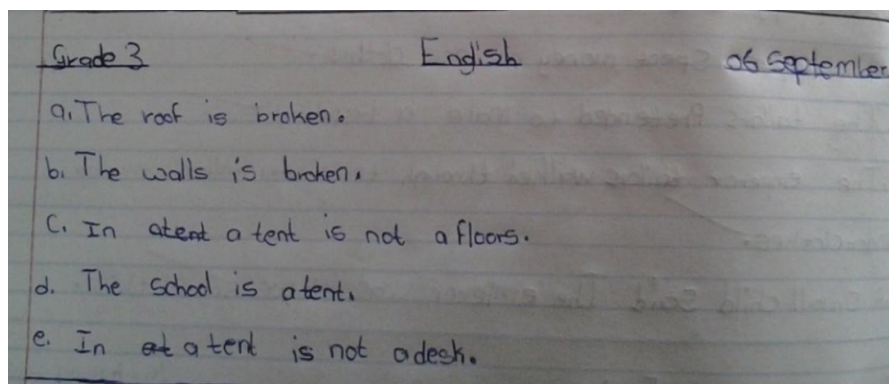 Grade 3 English 06 September
a. The roof is broken.
b. The walls is broken.
C. In atent a tent is not a floors.
d. The school is a tent.
e. In at a tent is not a desk.